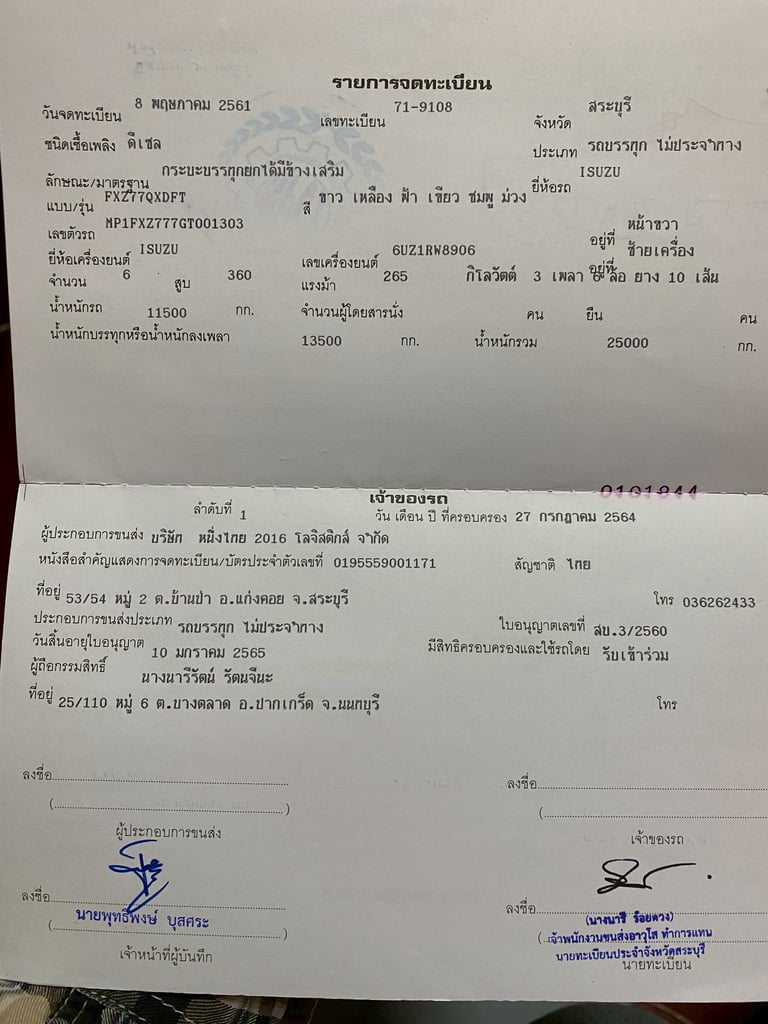 รายการจดทะเบียน
วันจดทะเบียน 8 พฤษภาคม 2561 เลขทะเบียน 71-9108 จังหวัด สระบุรี
ชนิดเชื้อเพลิง ดีเซล ประเภท รถบรรทุก ไม่ประจำทาง
ลักษณะ/มาตรฐาน กระบะบรรทุกยกได้มีข้างเสริม ยี่ห้อรถ ISUZU
แบบ/รุ่น FXZ77QXDFT สี ขาว เหลือง ฟ้า เขียว ชมพู ม่วง
เลขตัวรถ MP1FXZ777GT001303 อยู่ที่ หน้าขวา
ยี่ห้อเครื่องยนต์ ISUZU เลขเครื่องยนต์ 6UZ1RW8906 อยู่ที่ ซ้ายเครื่อง
จำนวน 6 สูบ 360 แรงม้า 265 กิโลวัตต์ 3 เพลา 6 ล้อ ยาง 10 เส้น
น้ำหนักรถ 11500 กก. จำนวนผู้โดยสารนั่ง คน ยืน คน
น้ำหนักบรรทุกหรือน้ำหนักลงเพลา 13500 กก. น้ำหนักรวม 25000 กก.
0101944
เจ้าของรถ
ลำดับที่ 1 วัน เดือน ปี ที่ครอบครอง 27 กรกฎาคม 2564
ผู้ประกอบการขนส่ง บริษัท หนึ่งไทย 2016 โลจิสติกส์ จำกัด
หนังสือสำคัญแสดงการจดทะเบียน/บัตรประจำตัวเลขที่ 0195559001171 สัญชาติ ไทย
ที่อยู่ 53/54 หมู่ 2 ต.บ้านป่า อ.แก่งคอย จ.สระบุรี โทร 036262433
ประกอบการขนส่งประเภท รถบรรทุก ไม่ประจำทาง ใบอนุญาตเลขที่ สบ.3/2560
วันสิ้นอายุใบอนุญาต 10 มกราคม 2565 มีสิทธิครอบครองและใช้รถโดย รับเข้าร่วม
ผู้ถือกรรมสิทธิ์ นางนารีรัตน์ รัตนจีนะ
ที่อยู่ 25/110 หมู่ 6 ต.บางตลาด อ.ปากเกร็ด จ.นนทบุรี โทร
ลงชื่อ ลงชื่อ
( ) (
ผู้ประกอบการขนส่ง เจ้าของรถ
ลงชื่อ ลงชื่อ
(นายพุทธิพงษ์ บุสศระ) (นางนารี ร้อยดวง)
เจ้าหน้าที่ผู้บันทึก (เจ้าพนักงานขนส่งอาวุโส ทำการแทน
นายทะเบียนประจำจังหวัดสระบุรี
นายทะเบียน